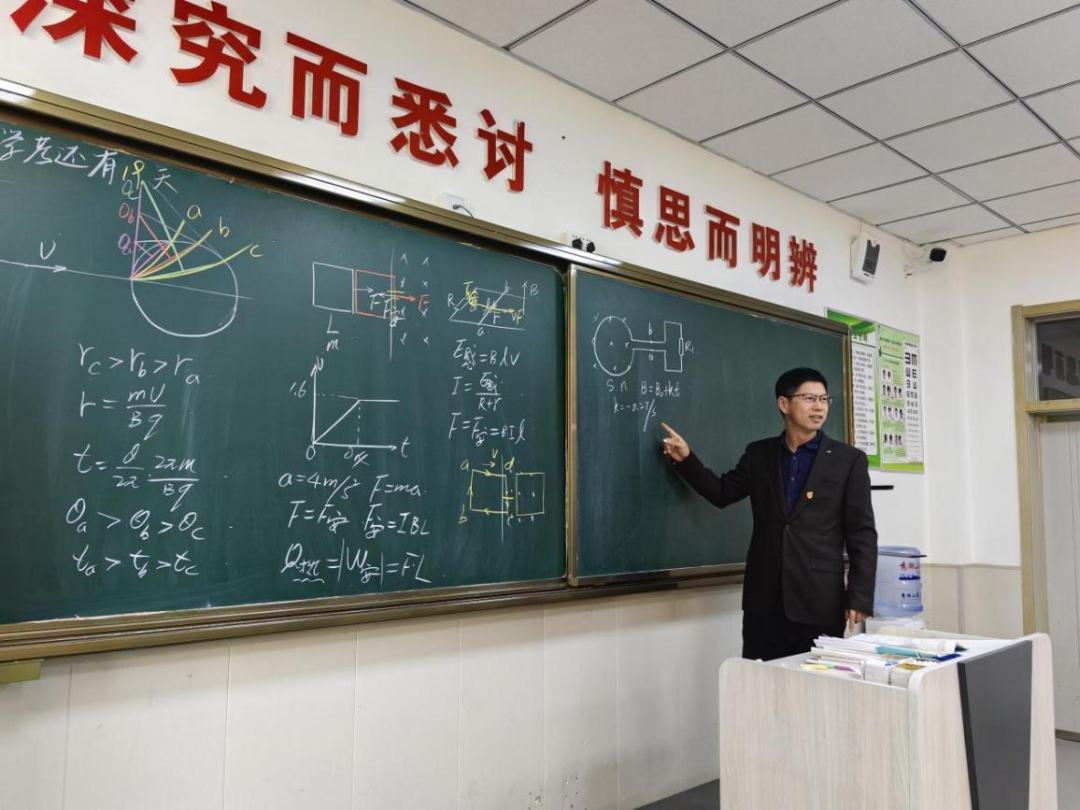 深究而悉讨 慎思而明辨
学考还有 19 天
a
b
c
V
r_c > r_b > r_a
r = mV/Bq
t = θ/2π 2πm/Bq
θ_a > θ_b > θ_c
t_a > t_b > t_c
L
m
F
t
0
a = 4m/s² F = ma
F = F安 F安 = IBL
Q热 = |W安| = FL
R
b
B
a
E感 = Blv
I = E感/R+r
F = F安 = BIl
a
v
d
b
c
b
a
R₁
S n B = B₀ + kt
k = -0.2T/s